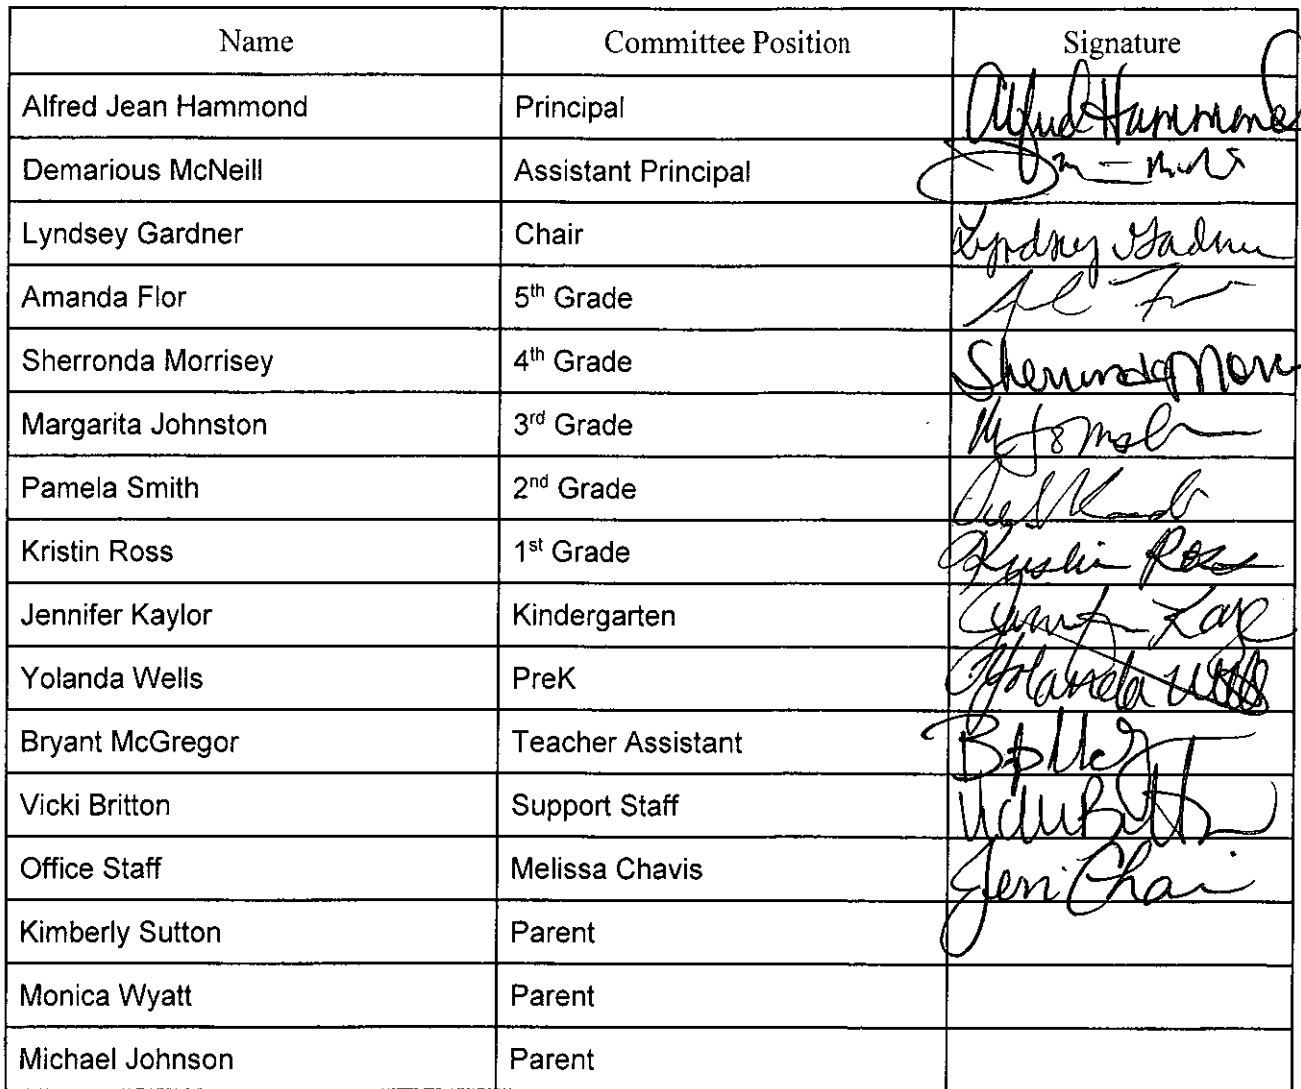 Name Committee Position Signature
Alfred Jean Hammond Principal Alfred Hammond
Demarious McNeill Assistant Principal
Lyndsey Gardner Chair Lyndsey Gardner
Amanda Flor 5th Grade
Sherronda Morrisey 4th Grade Sherronda
Margarita Johnston 3rd Grade
Pamela Smith 2nd Grade
Kristin Ross 1st Grade Kristin Ross
Jennifer Kaylor Kindergarten
Yolanda Wells PreK Yolanda Wells
Bryant McGregor Teacher Assistant
Vicki Britton Support Staff
Office Staff Melissa Chavis
Kimberly Sutton Parent
Monica Wyatt Parent
Michael Johnson Parent